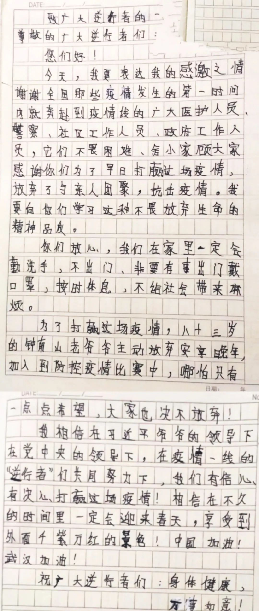 致广大逆行者的一
尊敬的广大逆行者们：
您们好！
今天，我要表达我的感激之情
谢谢全国那些疫情发生的第一时间
内就奔赴到疫情线的广大医护人员、
警察、社区工作人员、政府工作人
员，它们不畏困难、舍小家顾大家
感谢你们为了早日打赢这场疫情，
放弃了与亲人团聚，抗击疫情。我
要向你们学习这种不畏放弃生命的
精神品质。
你们放心，我们在家里一定会
勤洗手，不出门、非要有事出门戴
口罩，按时休息，不给社会带来麻
烦。
为了打赢这场疫情，八十三岁
的钟南山老爷爷主动放弃安享晚年，
加入到防控疫情比赛中，哪怕只有
一点点希望，大家也决不放弃！
我相信在习近平爷爷的领导下
在党中央的领导下，在疫情一线的
"逆行者"们共同努力下，我们有信心、
有决心打赢这场疫情！相信在不久
的时间里一定会迎来春天，享受到
外面千紫万红的景色！中国加油！
武汉加油！
祝广大逆行者们：身体健康，
万事如意！